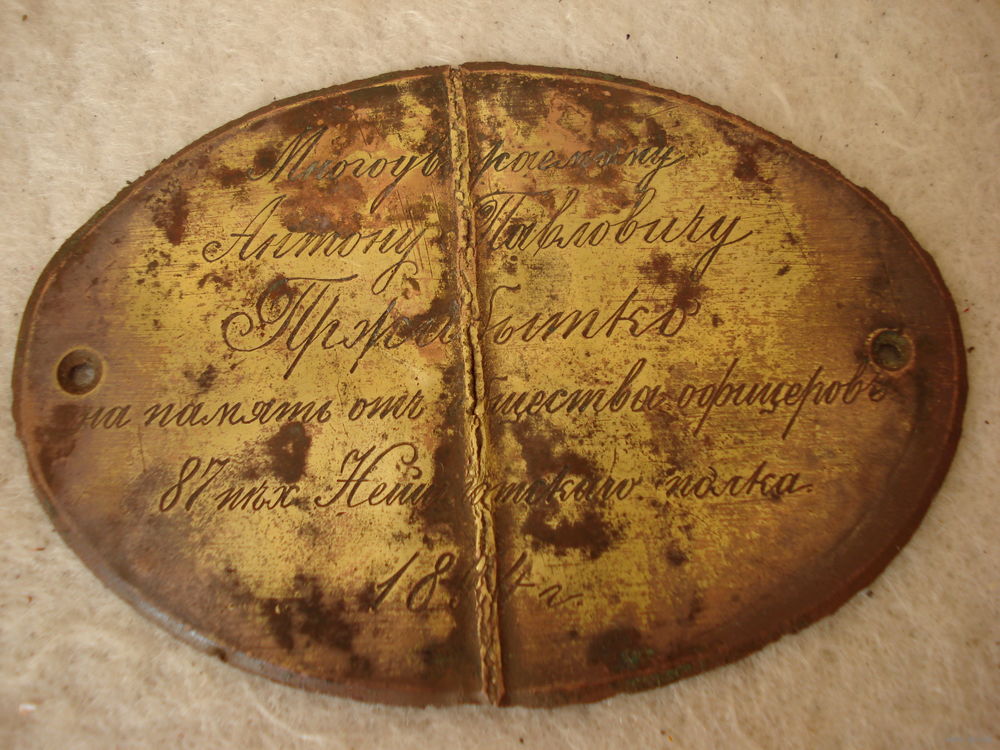 Многоуважаемому
Антону Павловичу
Пржибытко
на память отъ общества офицеровъ
87 пѣх Нейшлотскаго полка.